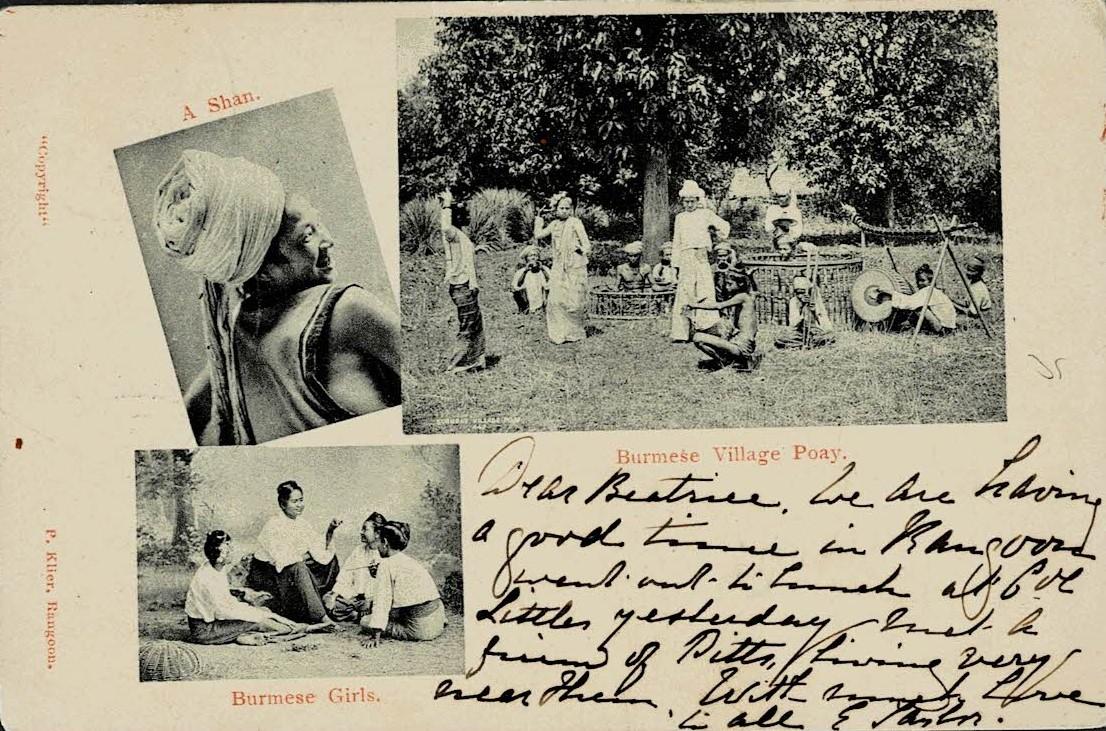 A Shan.
"Copyright"
Burmese Village Poay.
Dear Beatrice, We are having
a good time in Rangoon
went out to lunch at Col
Littles yesterday met a
of Pitts, living very
near them. With much Love
to all E Taylor.
P. Klier, Rangoon.
Burmese Girls.